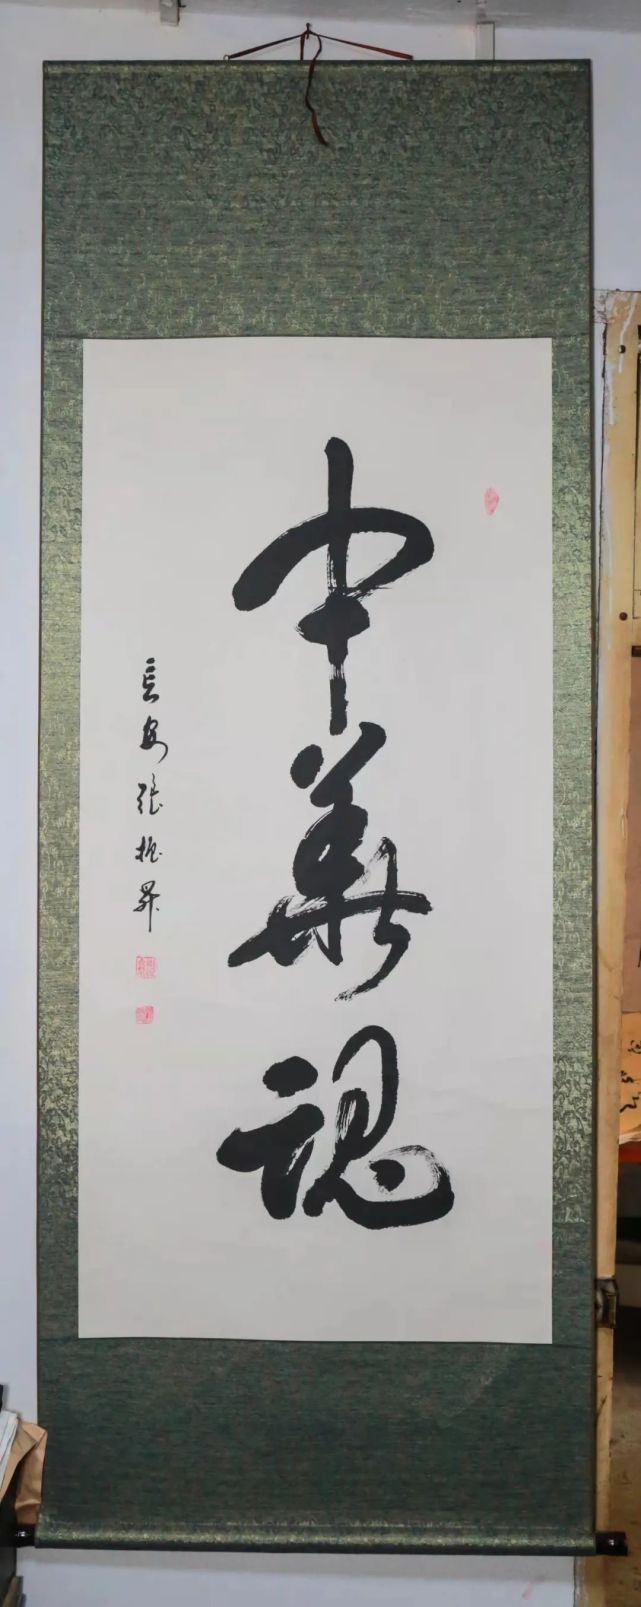 中華魂
長安張振昇